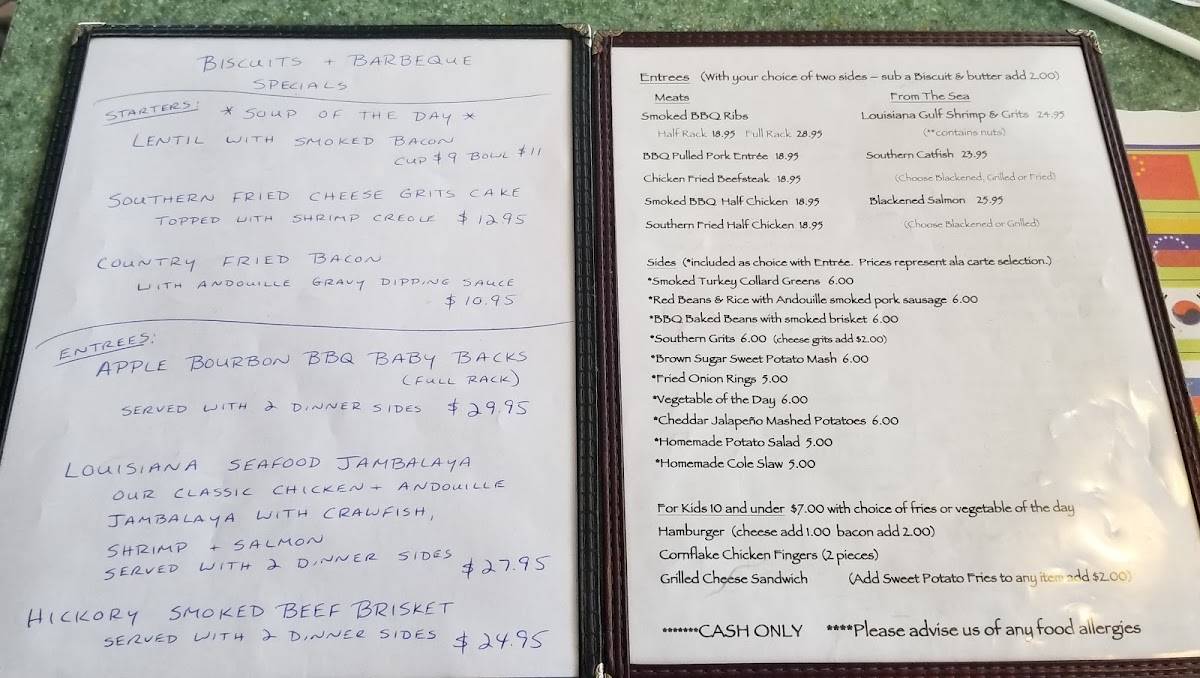 BISCUITS + BARBEQUE
SPECIALS
STARTERS: * SOUP OF THE DAY *
LENTIL WITH SMOKED BACON
CUP $9 BOWL $11
SOUTHERN FRIED CHEESE GRITS CAKE
TOPPED WITH SHRIMP CREOLE $12.95
COUNTRY FRIED BACON
WITH ANDOUILLE GRAVY DIPPING SAUCE
$10.95
ENTREES:
APPLE BOURBON BBQ BABY BACKS
(FULL RACK)
SERVED WITH 2 DINNER SIDES $29.95
LOUISIANA SEAFOOD JAMBALAYA
OUR CLASSIC CHICKEN + ANDOUILLE
JAMBALAYA WITH CRAWFISH,
SHRIMP + SALMON
SERVED WITH 2 DINNER SIDES $27.95
HICKORY SMOKED BEEF BRISKET
SERVED WITH 2 DINNER SIDES $24.95
Entrees (With your choice of two sides – sub a Biscuit & butter add 2.00)
Meats From The Sea
Smoked BBQ Ribs Louisiana Gulf Shrimp & Grits 24.95
Half Rack 18.95 Full Rack 28.95 (**contains nuts)
BBQ Pulled Pork Entrée 18.95 Southern Catfish 23.95
Chicken Fried Beefsteak 18.95 (Choose Blackened, Grilled or Fried)
Smoked BBQ Half Chicken 18.95 Blackened Salmon 25.95
Southern Fried Half Chicken 18.95 (Choose Blackened or Grilled)
Sides (*included as choice with Entrée. Prices represent ala carte selection.)
*Smoked Turkey Collard Greens 6.00
*Red Beans & Rice with Andouille smoked pork sausage 6.00
*BBQ Baked Beans with smoked brisket 6.00
*Southern Grits 6.00 (cheese grits add $2.00)
*Brown Sugar Sweet Potato Mash 6.00
*Fried Onion Rings 5.00
*Vegetable of the Day 6.00
*Cheddar Jalapeño Mashed Potatoes 6.00
*Homemade Potato Salad 5.00
*Homemade Cole Slaw 5.00
For Kids 10 and under $7.00 with choice of fries or vegetable of the day
Hamburger (cheese add 1.00 bacon add 2.00)
Cornflake Chicken Fingers (2 pieces)
Grilled Cheese Sandwich (Add Sweet Potato Fries to any item add $2.00)
*******CASH ONLY ****Please advise us of any food allergies